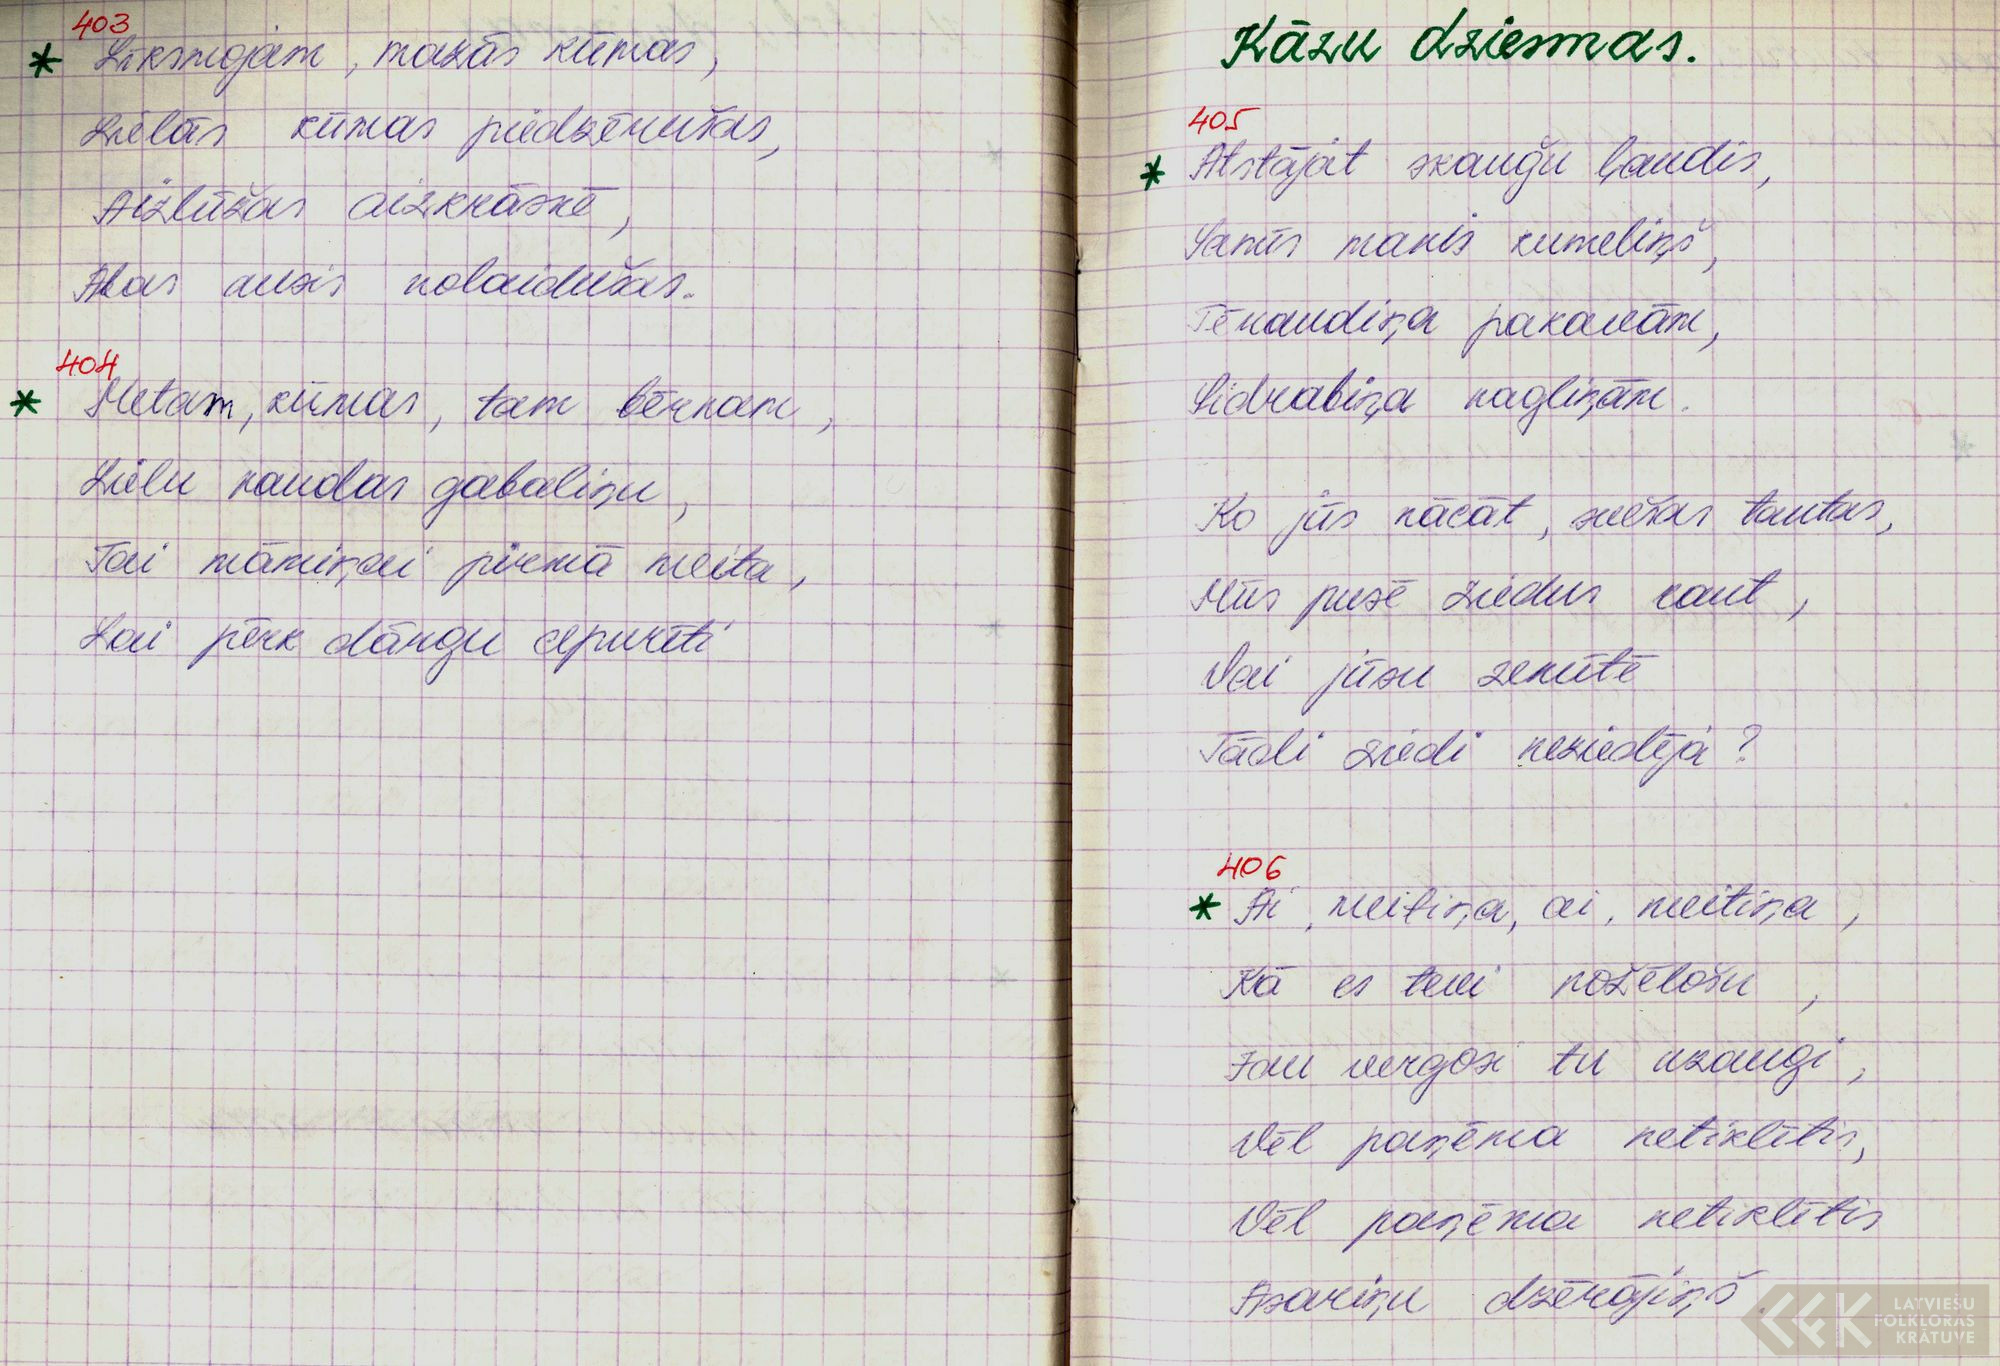 403
* Līksmojam, mazās kūmas,
Lielās kūmas piedzērušas,
Aizlūžas aizkrāsnē,
Abas ausis nolaidušas.
404
* Metam, kūmas, tam bērnam,
Lielu naudas gabaliņu,
Tai māmiņai pirmā meita,
Lai pērk dārgu cepurīti
Kāzu dziesmas.
405
* Atstājāt skauģu ļaudis,
Ņems manis kumeliņš,
Tēraudiņa pakavām,
Sidrabiņa nagliņām.
Ko jūs nācāt, svešas tautas,
Mūs pusē ziedus raut,
Vai jūsu zemītē
Tādi ziedi neziedēja?
406
* Ai, meitiņa, ai, meitiņa,
Kā es tevi nožēlošu,
Jau vergosi tu uzaugi,
Vēl paņēma netiklītis,
Vēl paņēma netiklītis
Asariņu dzērājiņš.
LATVIEŠU
FOLKLORAS
KRĀTUVE